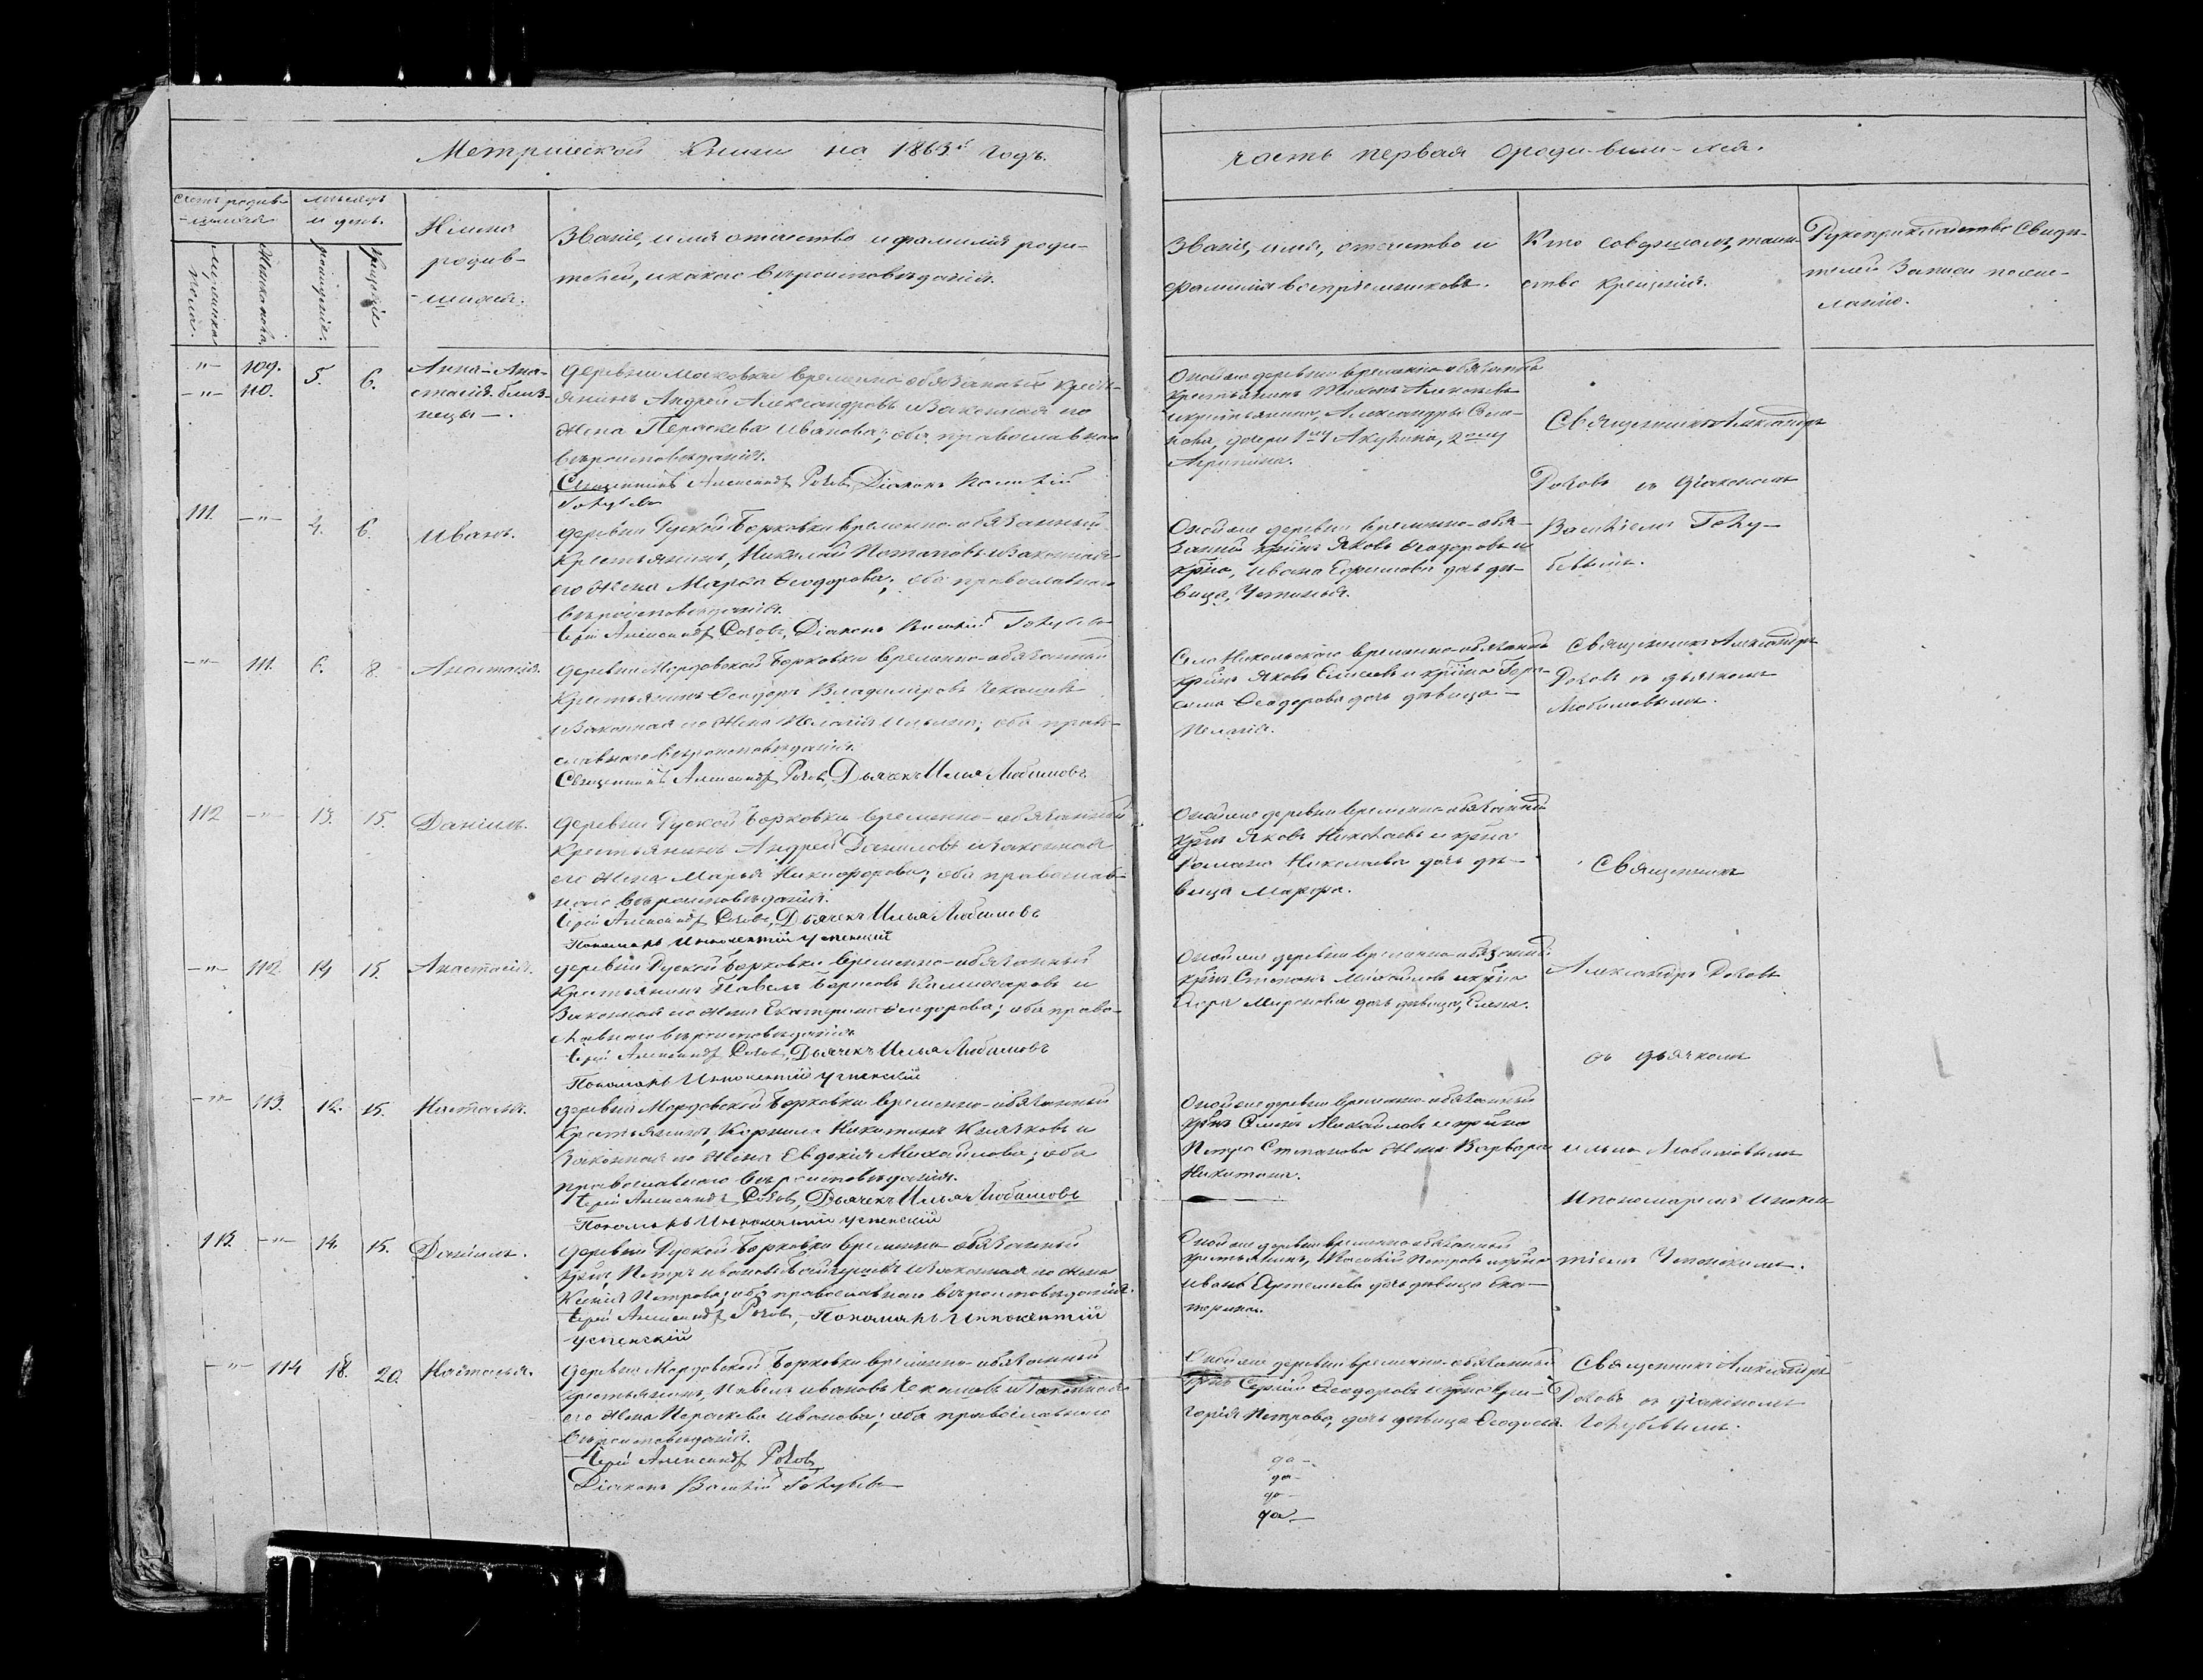 Метрической Книги на 1863й годъ.
часть первая о родившихся.
Счетъ родив-
-шихся
мѣсяцъ
и день.
мужеска
пола.
Женскаго.
рожденіе.
крещеніе
Имена
родив-
-шихся.
Званіе, имя отчество и фамилія роди-
телей, и какого вѣроисповѣданія.
Званіе, имя, отчество и
фамилія воспріемниковъ.
Кто совершалъ таин-
ство крещенія.
Рукоприкладство Свидѣ-
телей записи по же-
ланію.
-"- 109.
-"- 110.
5. 6.
Анна-Ана-
стасія близ-
нецы-.
деревни временно-обязанный кресть-
янинъ Андрей Александровъ и законная его
жена Параскева Иванова; оба православнаго
вѣроисповѣданія.
Священникъ Александръ Діаконъ Василій
Голубевъ
Оной же деревни временно-обязанный
крестьянинъ
и крестьянина, Александра
дочери 1му Акулина, 2ому
Агрипина.
Священникъ Александръ
съ діакономъ
Василіемъ Голу-
бевымъ.
111. -"- 4. 6. Иванъ.
деревни Руской Борковки временно-обязанный
Крестьянинъ, Николай Потаповъ и законная
его жена Марѳа Ѳеодорова; оба православнаго
вѣроисповѣданія.
Іерей Александръ Діаконъ Василій Голубевъ
Оной же деревни временно-обя-
занный крнъ Яковъ Ѳеодоровъ и
крна, Ивана Ефимова дочь дѣ-
вица, Устинья.
-"- 111. 6. 8. Анастасія.
деревни Мордовской Борковки временно-обязанный
Крестьянинъ Ѳеодоръ Владиміровъ
и законная его жена Пелагія Ильина; оба право-
славнаго вѣроисповѣданія.
Священникъ Александръ Дьячекъ Илья Любимовъ
Села Никольскаго временно-обязанный
крнъ Яковъ Елисеевъ и крна Гера-
сима Ѳеодорова дочь дѣвица-
Пелагія.
Священникъ Александръ
съ дьячкомъ
Любимовымъ.
112 -"- 13. 15. Даніилъ.
деревни Руской Борковки временно-обязанный
Крестьянинъ Андрей Даниловъ и законная
его жена Марья Никифорова; оба православ-
наго вѣроисповѣданія.
Іерей Александръ Дьячекъ Илья Любимовъ
Пономарь Иннокентій Успенскій
Оной же деревни временно-обязанный
крнъ Яковъ Николаевъ и крна
Романа Николаева дочь дѣ-
вица Марѳа.
Священникъ
-"- 112. 14 15. Анастасія.
деревни Руской Борковки временно-обязанный
Крестьянинъ Павелъ Борисовъ Камисаровъ и
Законная его жена Екатерина Ѳеодорова; оба право-
славнаго вѣроисповѣданія.
Іерей Александръ Дьячекъ Илья Любимовъ
Пономарь Иннокентій Успенскій
Оной же деревни временно-обязанный
крнъ Степанъ Михайловъ и крна
Миронова дочь дѣвица, Елена.
Александръ
съ дьячкомъ
-"- 113. 12. 15. Наталія.
деревни Мордовской Борковки временно-обязанный
Крестьянинъ, Корнила Никитинъ и
Законная его жена Евдокія Михайлова; оба
православнаго вѣроисповѣданія.
Іерей Александръ Дьячекъ Илья Любимовъ
Пономарь Иннокентій Успенскій
Оной же деревни временно-обязанный
крнъ Семенъ Михайловъ и крна
Петра Степанова жена Варвара
Никитина.
Ильею Любимовымъ
и пономаремъ Инокен-
тіемъ Успенскимъ.
113. -"- 14. 15. Даніилъ.
деревни Руской Борковки временно-обязанный
крнъ, Петръ Ивановъ и законная его жена
Ксенія Петрова; оба православнаго вѣроисповѣданія.
Іерей Александръ - Пономарь Иннокентій
Успенскій
Оной же деревни временно-обязанный
крестьянинъ, Василій Петровъ и крна
Ивана Артемьева дочь дѣвица Ека-
терина.
-"- 114 18. 20. Наталья.
деревни Мордовской Борковки временно-обязанный
крестьянинъ, Павелъ Ивановъ и законная
его жена Параскева Иванова; оба православнаго
вѣроисповѣданія.
Іерей Александръ
Діаконъ Василій Голубевъ
Оной же деревни временно-обязанный
крнъ Сергій Ѳеодоровъ и крна Гри-
горія Петрова, дочь дѣвица Ѳеодосія.
Священникъ Александръ
съ діакономъ
Голубевымъ.
да-
да-
да-
да-